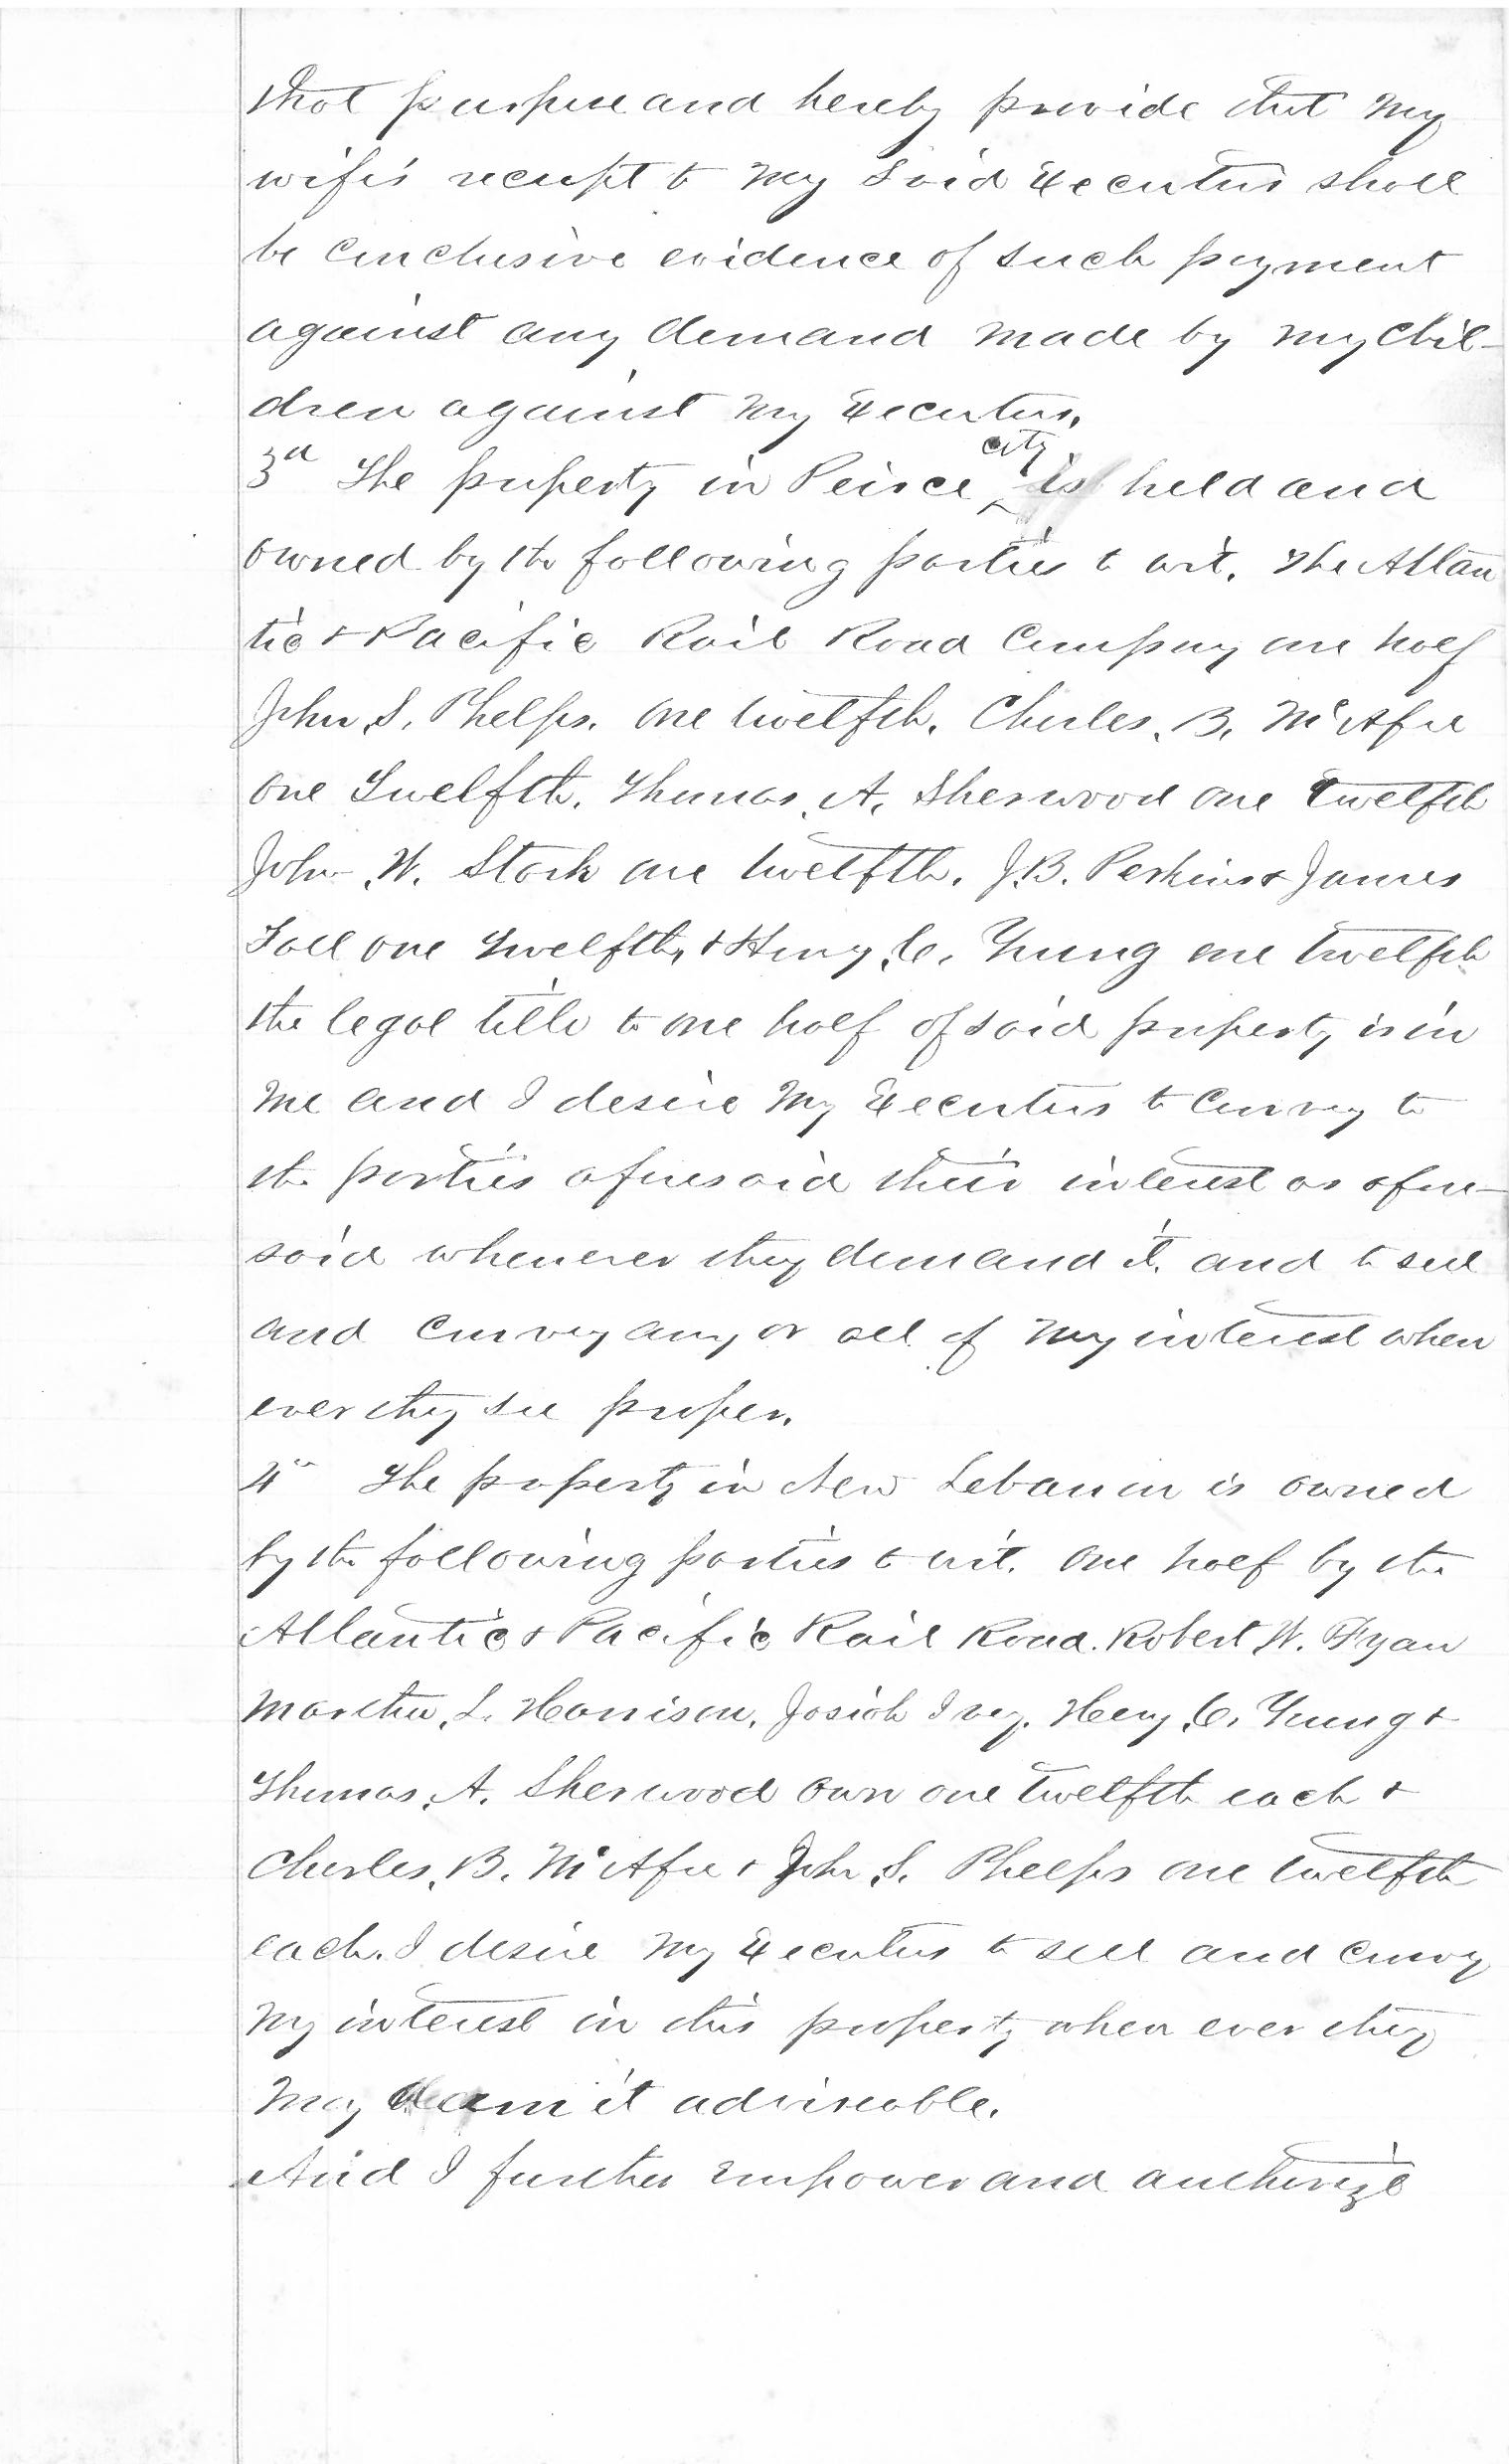 that purpose and hereby provide that my
wife's receipt to my said Executors shall
be conclusive evidence of such payment
against any demand made by my chil-
dren against my Executors.
3d The property in Peirce city is held and
owned by the following parties to wit. The Atlan
tic & Pacific Rail Road Company one half
John S. Phelps. one twelfth. Charles B. McAfee
one Twelfth. Thomas A. Sherwood one twelfth
John W. Stark one twelfth. J.B. Perkins & James
one Twelfth, & Henry C. Young one twelfth
the legal title to one half of said property is in
me and I desire my Executors to convey to
the parties aforesaid their interest as afore-
said whenever they demand it. and to sell
and convey any or all of my interest when
ever they see proper.
4th The property in New Lebanon is owned
by the following parties to wit. One half by the
Atlantic & Pacific Rail Road. Robert W. Fyan
Martha L. Harrison, Josiah Ivey. Henry C. Young &
Thomas A. Sherwood own one twelfth each &
Charles B. McAfee & John S. Phelps one twelfth
each. I desire my Executors to sell and convey
my interest in this property when ever they
may deem it adviseable.
And I further empower and authorize